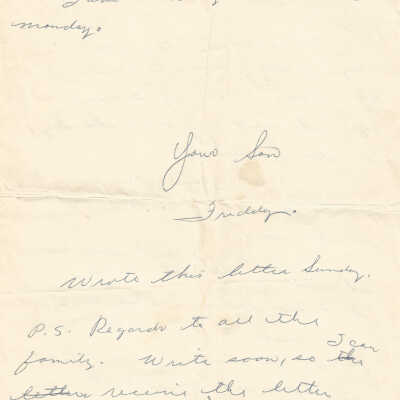 monday.
Your Son
Freddy.
Wrote this letter Sunday.
P.S. Regards to all the
family. Write soon, so I can
receive the letter